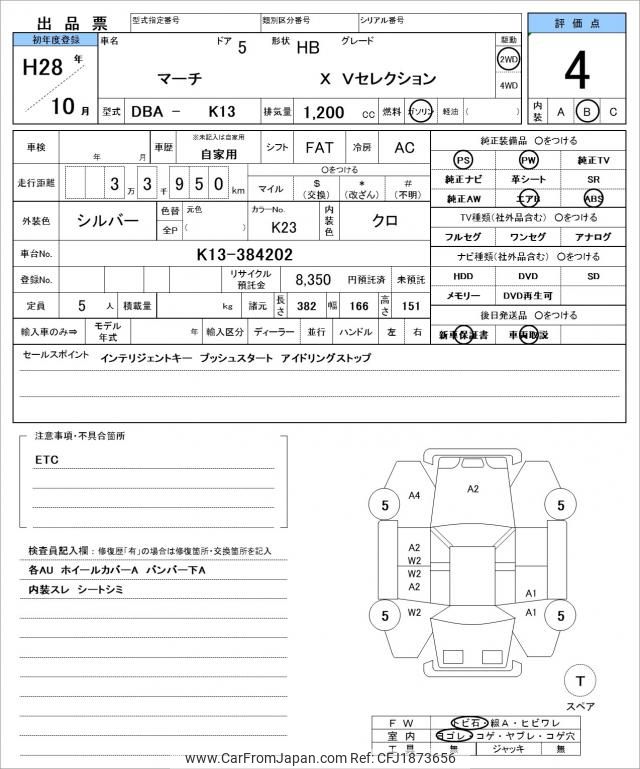 出品票 型式指定番号 類別区分番号 シリアル番号
評価点
初年度登録 車名 ドア 5 形状 HB グレード 駆動
H28 年 マーチ X Vセレクション 2WD 4
4WD
10 月 型式 DBA － K13 排気量 1,200 cc 燃料 ガソリン 軽油 （ ） 内装 A B C
車検 年 月 車歴 ※未記入は自家用 自家用 シフト FAT 冷房 AC
走行距離 3 万 3 千 9 5 0 km 〇をつける マイル $ （交換） * （改ざん） # （不明）
外装色 シルバー 色替 全P 元色 （ ） カラーNo. K23 内装色 クロ
車台No. K13-384202
登録No. リサイクル預託金 8,350 円預託済 未預託
定員 5 人 積載量 kg 諸元 長さ 382 幅 166 高さ 151
輸入車のみ⇒ モデル年式 年 輸入区分 ディーラー 並行 ハンドル 左 右
純正装備品 〇をつける
PS PW 純正TV
純正ナビ 革シート SR
純正AW エアB ABS
TV種類(社外品含む) 〇をつける
フルセグ ワンセグ アナログ
ナビ種類(社外品含む) 〇をつける
HDD DVD SD
メモリー DVD再生可
後日発送品 〇をつける
新車保証書 車両取説
セールスポイント インテリジェントキー プッシュスタート アイドリングストップ
注意事項・不具合箇所
ETC
検査員記入欄：修復歴「有」の場合は修復箇所・交換箇所を記入
各AU ホイールカバーA バンパー下A
内装スレ シートシミ
A4 A2
5 5
A2
W2
W2
A2
A1
W2 A1
5 5
T
スペア
FW トビ石・線A・ヒビワレ
室内 ヨゴレ・コゲ・ヤブレ・コゲ穴
工具 無 ジャッキ 無
www.CarFromJapan.com Ref: CFJ1873656